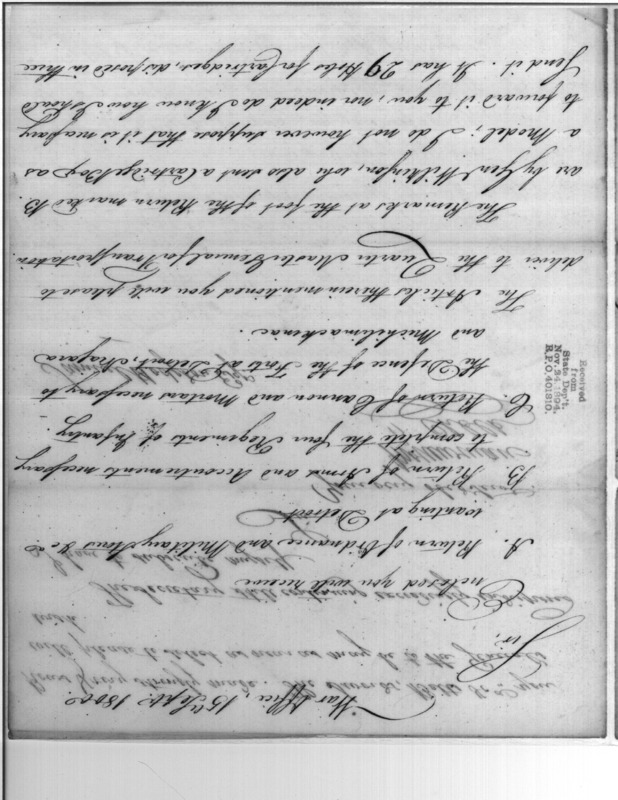 War Office, 15th Sept. 1800.
Sir,
Enclosed you will receive
A. Return of Ordnance and Military Stores &c
wanting at Detroit.
B Return of Arms and Accoutrements necessary
to complete the four Regiments of Infantry.
C. Return of Cannon and Mortars necessary to
the Defence of the Forts at Detroit, Niagara
and Michilimackinac.
The Articles therein mentioned you will please to
deliver to the Quarter Master General for Transportation.
The Remarks at the foot of the Return marked B.
are by Genl. Wilkinson, who also sent a Cartridge Box as
a Model; I do not however suppose that it is necessary
to forward it to you, nor indeed do I know how I should
send it. It has 29 Holes for Cartridges, disposed in three
Received
from
State Dep't.
Nov. 24, 1894.
R.P.O. 401310.